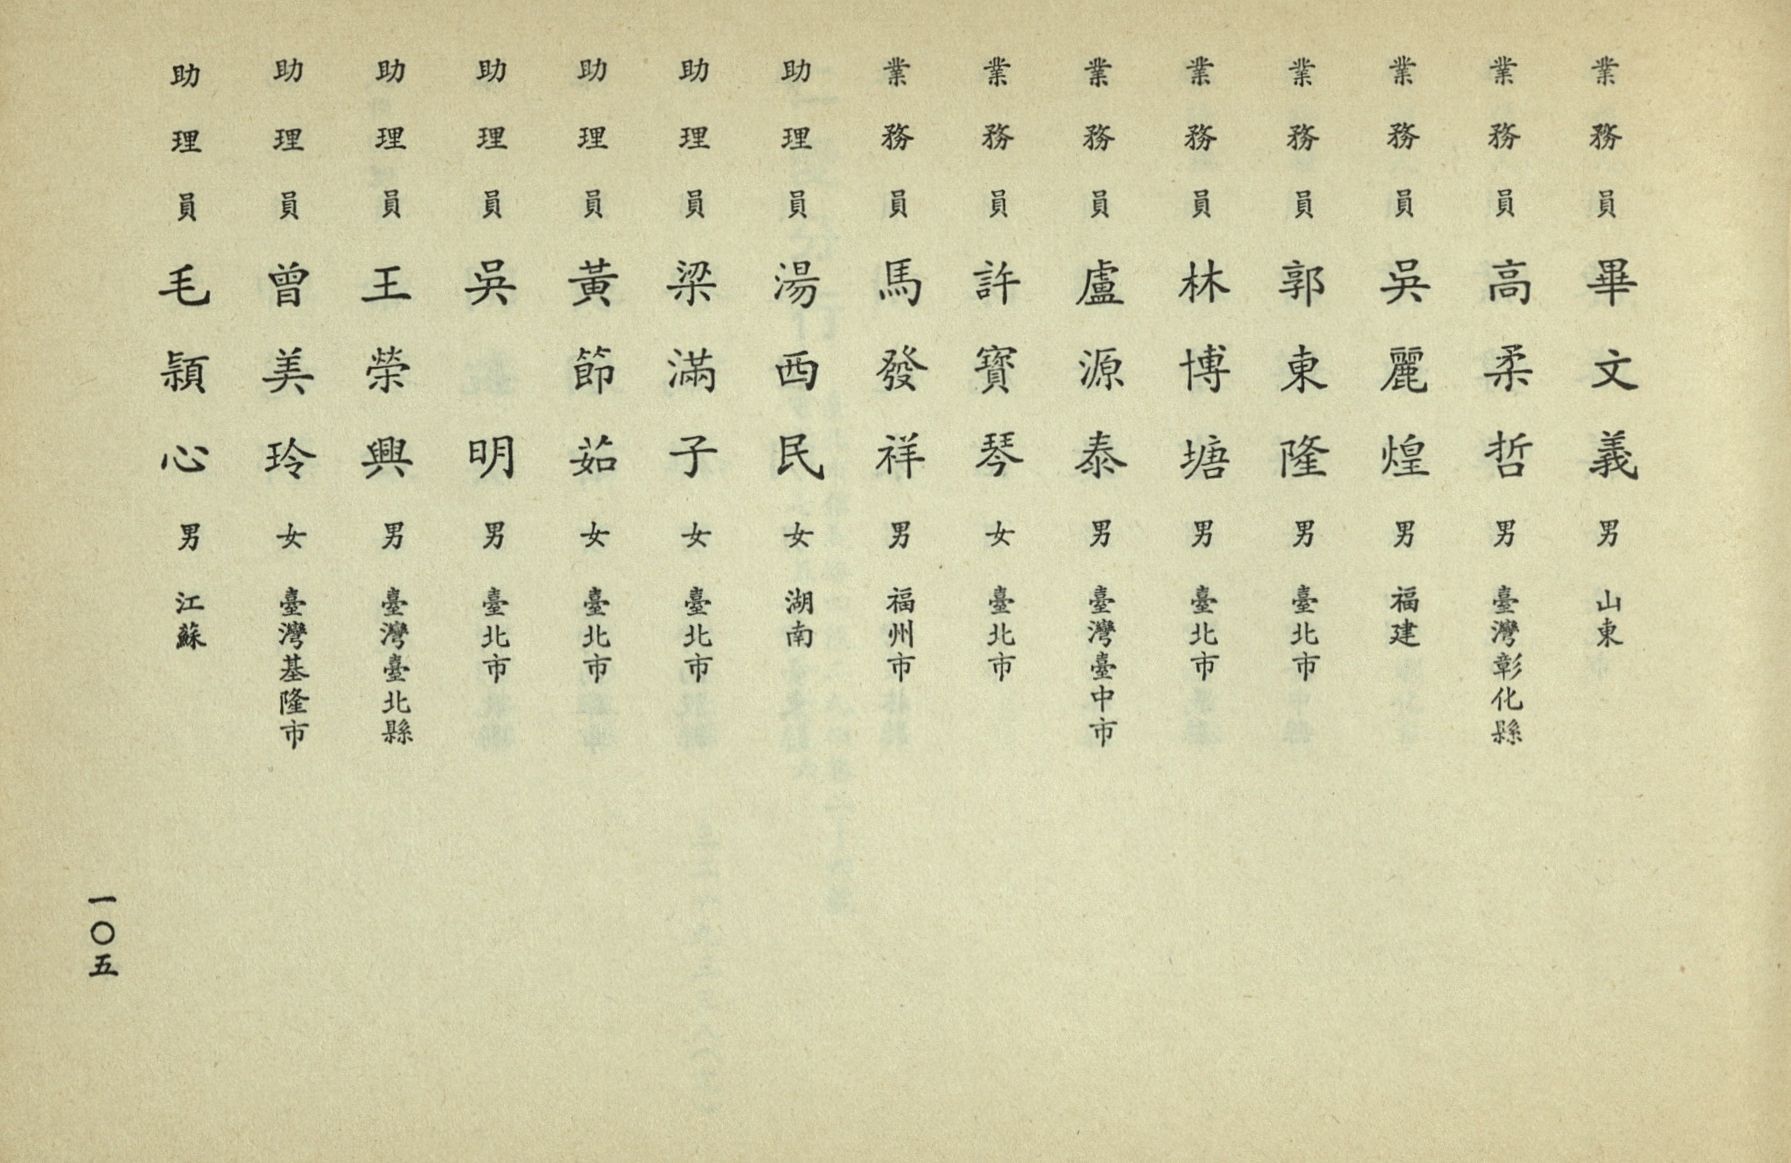 業務員畢文義男山東
業務員高柔哲男臺灣彰化縣
業務員吳麗煌男福建
業務員郭東隆男臺北市
業務員林博塘男臺北市
業務員盧源泰男臺灣臺中市
業務員許寶琴女臺北市
業務員馬發祥男福州市
助理員湯西民女湖南
助理員梁滿子女臺北市
助理員黃節茹女臺北市
助理員吳明男臺北市
助理員王榮興男臺灣臺北縣
助理員曾美玲女臺灣基隆市
助理員毛頴心男江蘇
一〇五